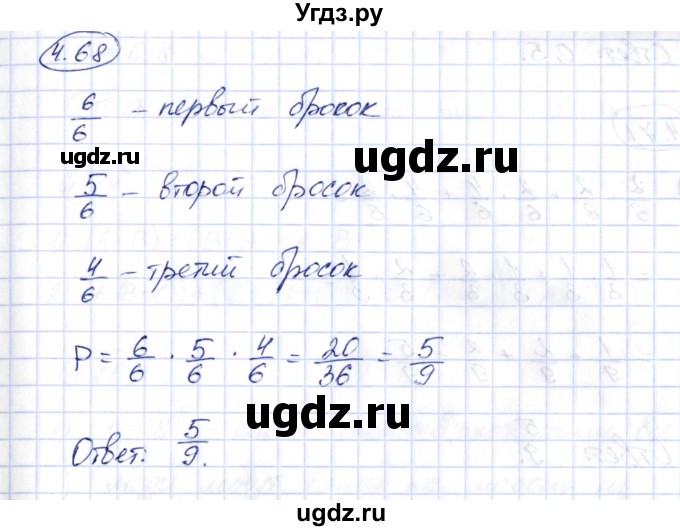 Угдз.ру
4.68
6/6 – первый бросок
ugdz.ru ugdz.ru
5/6 – второй бросок
4/6 – третий бросок
ugdz.ru
P = 6/6 · 5/6 · 4/6 = 20/36 = 5/9
ugdz.ru
Ответ: 5/9.
ugdz.ru